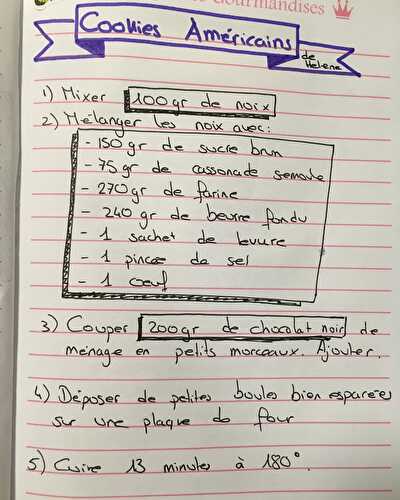 Gourmandises
Cookies Américains
de
Hélène
1) Mixer 100gr de noix
2) Mélanger les noix avec:
- 150gr de sucre brun
- 75gr de cassonade semoule
- 270gr de farine
- 240gr de beurre fondu
- 1 sachet de levure
- 1 pincée de sel
- 1 oeuf
3) Couper 200gr de chocolat noir de
ménage en petits morceaux. Ajouter.
4) Déposer de petites boules bien espacées
sur une plaque de four
5) Cuire 13 minutes à 180°.